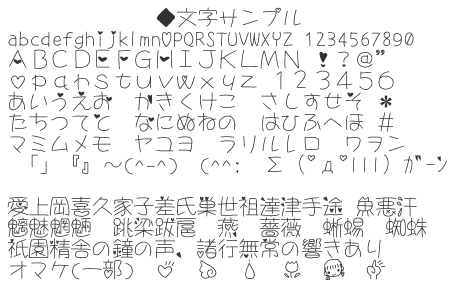 ◆文字サンプル
abcdefghijklmn♡PQRSTUVWXYZ 1234567890
ABCDEFGHIJKLMN !?@"
♡pqrstuvwxyz 123456
あいうえお かきくけこ さしすせそ *
たちつてと なにぬねの はひふへほ #
マミムメモ ヤユヨ ラリルレロ ワヲン
「」『』~(^-^) (^^; Σ(♡д♡lll) ガーン
愛上岡喜久家子差氏巣世祖達津手塗 魚悪汗
魑魅魍魎 跳梁跋扈 燕 薔薇 蜥蜴 蜘蛛
祇園精舎の鐘の声、諸行無常の響きあり
オマケ(一部)